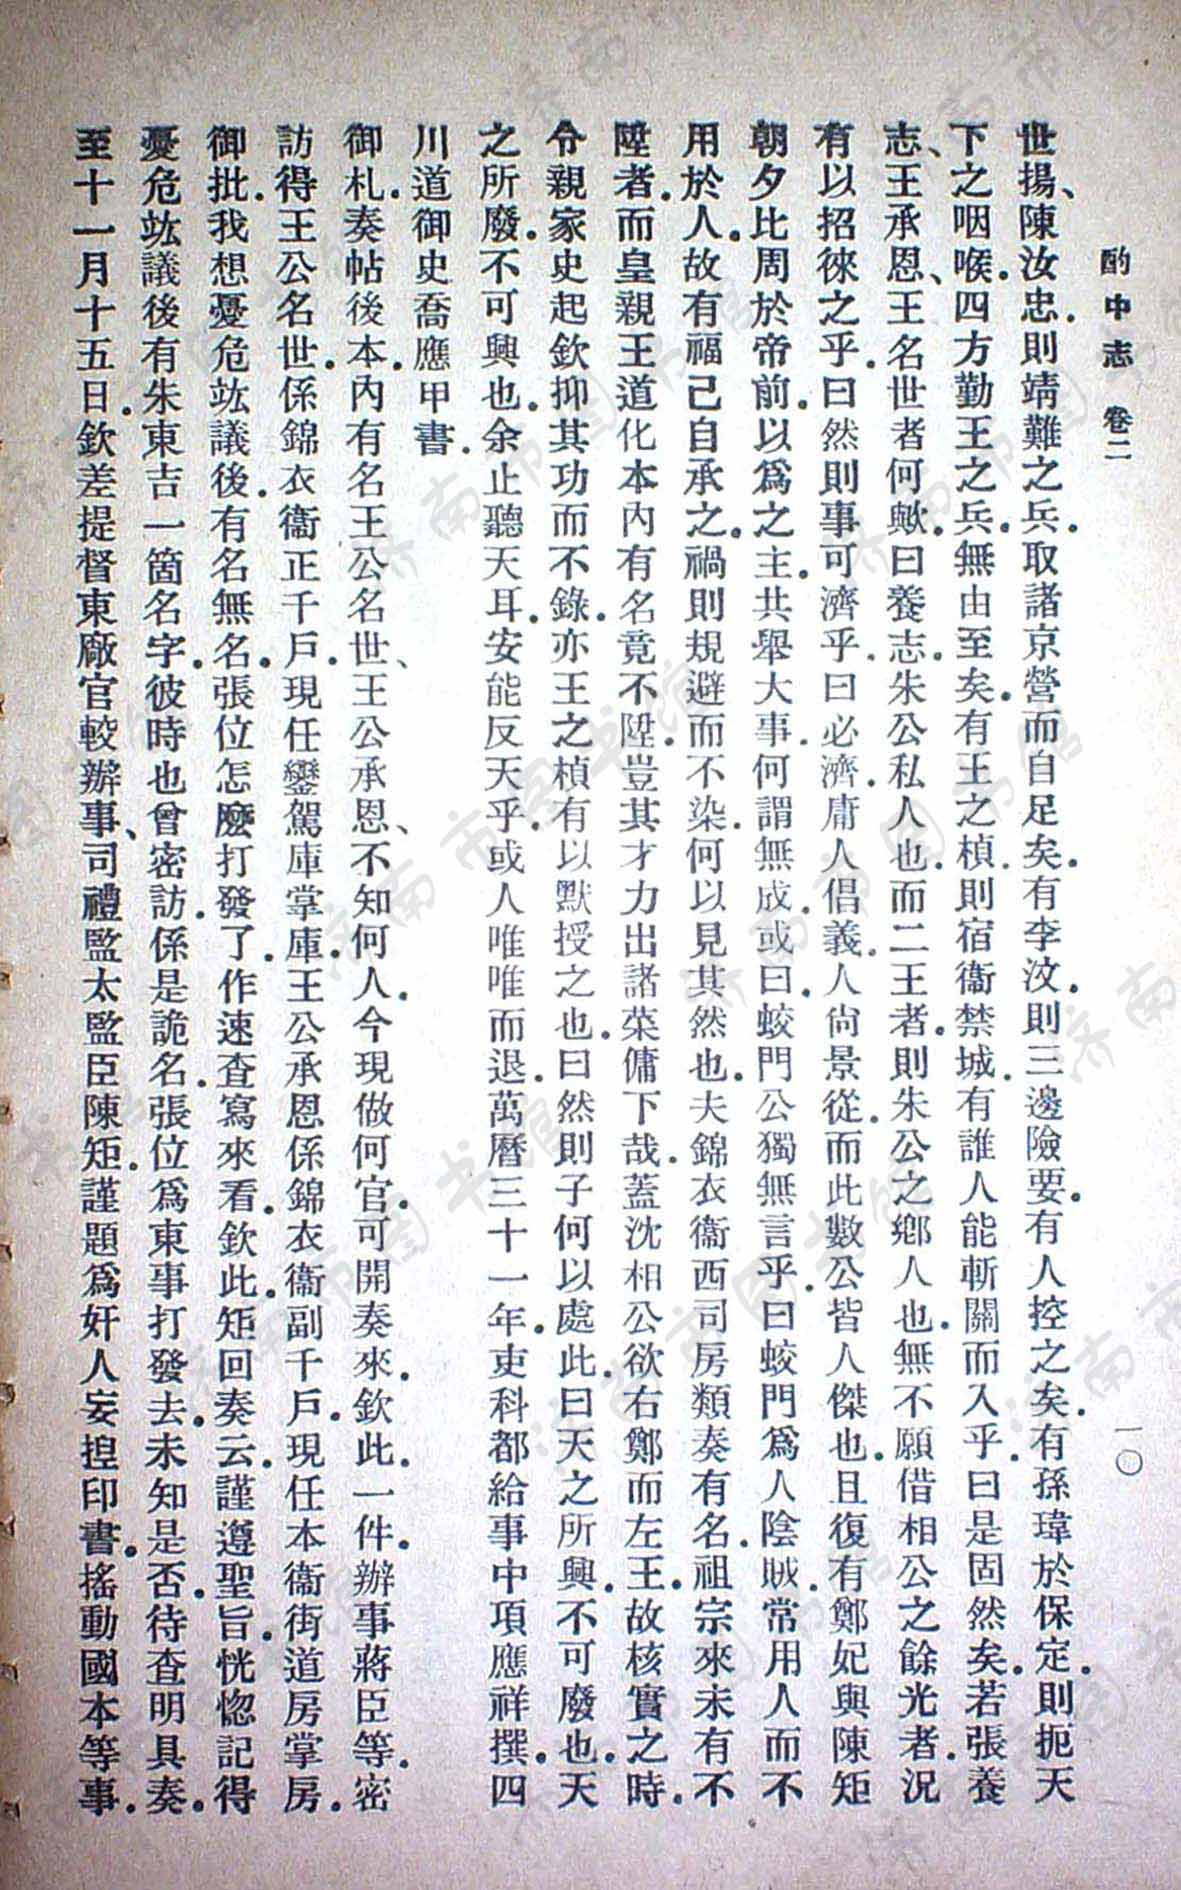 酌中志 卷二 一〇
世揚、陳汝忠.則靖難之兵.取諸京營而自足矣.有李汶.則三邊險要.有人控之矣.有孫瑋於保定.則扼天
下之咽喉.四方勤王之兵.無由至矣.有王之楨.則宿衞禁城.有誰人能斬關而入乎.曰是固然矣.若張養
志、王承恩、王名世者何歟.曰養志.朱公私人也.而二王者.則朱公之鄉人也.無不願借相公之餘光者.況
有以招徠之乎.曰然則事可濟乎.曰必濟.庸人倡義.人尙景從.而此數公皆人傑也.且復有鄭妃與陳矩
朝夕比周於帝前.以爲之主.共舉大事.何謂無成.或曰.蛟門公獨無言乎.曰蛟門爲人陰賊.常用人而不
用於人.故有福己自承之.禍則規避而不染.何以見其然也.夫錦衣衞西司房類奏有名.祖宗來未有不
陞者.而皇親王道化本內有名.竟不陞.豈其才力出諸菜傭下哉.蓋沈相公欲右鄭而左王.故核實之時.
令親家史起欽抑其功而不錄.亦王之楨有以默授之也.曰然則子何以處此.曰天之所興.不可廢也.天
之所廢.不可興也.余止聽天耳.安能反天乎.或人唯唯而退.萬曆三十一年.吏科都給事中項應祥撰.四
川道御史喬應甲書.
御札.奏帖後本.內有名王公名世、王公承恩、不知何人.今現做何官.可開奏來.欽此.一件.辦事蔣臣等.密
訪得王公名世.係錦衣衞正千戶.現任鑾駕庫掌庫.王公承恩係錦衣衞副千戶.現任本衞街道房掌房.
御批.我想憂危竑議後.有名無名.張位怎麼打發了.作速查寫來看.欽此.矩回奏云.謹遵聖旨.恍惚記得
憂危竑議後有朱東吉一箇名字.彼時也曾密訪.係是詭名.張位爲東事打發去.未知是否.待查明具奏.
至十一月十五日.欽差提督東廠官較辦事、司禮監太監臣陳矩.謹題爲奸人妄揑印書.搖動國本等事.